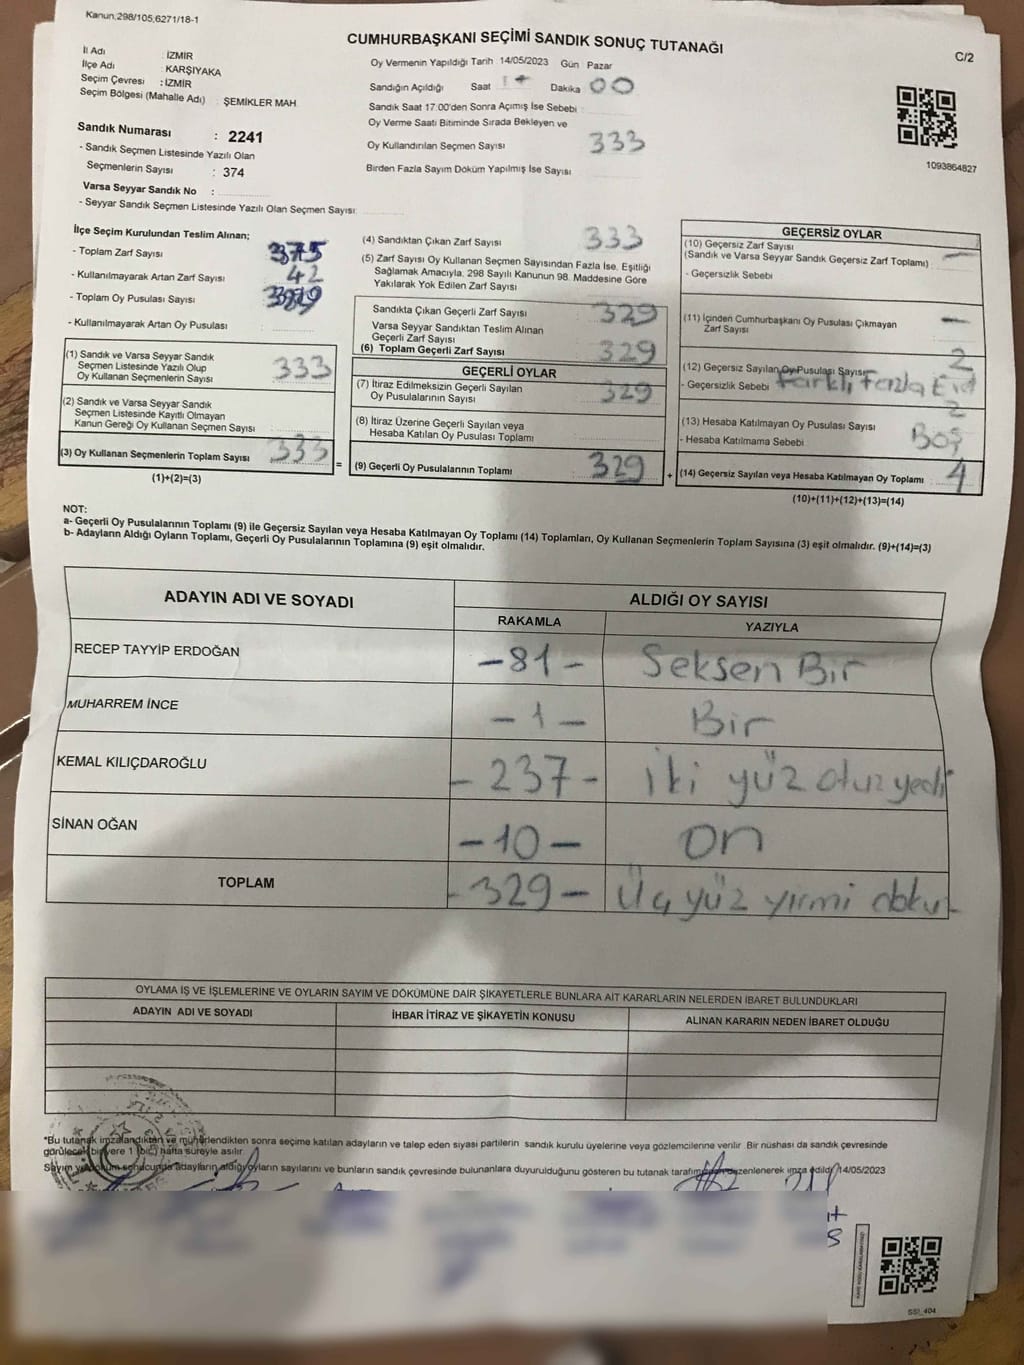 Kanun;298/105;6271/18-1
CUMHURBAŞKANI SEÇİMİ SANDIK SONUÇ TUTANAĞI
C/2
İl Adı : İZMİR
İlçe Adı : KARŞIYAKA
Seçim Çevresi : İZMİR
Seçim Bölgesi (Mahalle Adı) : ŞEMİKLER MAH
Sandık Numarası : 2241
- Sandık Seçmen Listesinde Yazılı Olan
Seçmenlerin Sayısı : 374
Varsa Seyyar Sandık No :
- Seyyar Sandık Seçmen Listesinde Yazılı Olan Seçmen Sayısı:
Oy Vermenin Yapıldığı Tarih 14/05/2023 Gün Pazar
Sandığın Açıldığı Saat Dakika 00
Sandık Saat 17:00'den Sonra Açımış İse Sebebi
Oy Verme Saati Bitiminde Sırada Bekleyen ve
Oy Kullandırılan Seçmen Sayısı 333
Birden Fazla Sayım Döküm Yapılmış İse Sayısı
1093864827
İlçe Seçim Kurulundan Teslim Alınan;
- Toplam Zarf Sayısı 375
- Kullanılmayarak Artan Zarf Sayısı 42
- Toplam Oy Pusulası Sayısı
- Kullanılmayarak Artan Oy Pusulası :
(1) Sandık ve Varsa Seyyar Sandık
Seçmen Listesinde Yazılı Olup
Oy Kullanan Seçmenlerin Sayısı 333
(2) Sandık ve Varsa Seyyar Sandık
Seçmen Listesinde Kayıtlı Olmayan
Kanun Gereği Oy Kullanan Seçmen Sayısı
(3) Oy Kullanan Seçmenlerin Toplam Sayısı 333 =
(1)+(2)=(3)
(4) Sandıktan Çıkan Zarf Sayısı 333
(5) Zarf Sayısı Oy Kullanan Seçmen Sayısından Fazla İse, Eşitliği
Sağlamak Amacıyla, 298 Sayılı Kanunun 98. Maddesine Göre
Yakılarak Yok Edilen Zarf Sayısı
Sandıkta Çıkan Geçerli Zarf Sayısı 329
Varsa Seyyar Sandıktan Teslim Alınan
Geçerli Zarf Sayısı
(6) Toplam Geçerli Zarf Sayısı 329
GEÇERLİ OYLAR
(7) İtiraz Edilmeksizin Geçerli Sayılan
Oy Pusulalarının Sayısı 329
(8) İtiraz Üzerine Geçerli Sayılan veya
Hesaba Katılan Oy Pusulası Toplamı
(9) Geçerli Oy Pusulalarının Toplamı 329 +
GEÇERSİZ OYLAR
(10) Geçersiz Zarf Sayısı
(Sandık ve Varsa Seyyar Sandık Geçersiz Zarf Toplamı) –
- Geçersizlik Sebebi
(11) İçinden Cumhurbaşkanı Oy Pusulası Çıkmayan
Zarf Sayısı –
(12) Geçersiz Sayılan Oy Pusulası Sayısı 2
- Geçersizlik Sebebi Farklı Fazla
(13) Hesaba Katılmayan Oy Pusulası Sayısı 2
- Hesaba Katılmama Sebebi Boş
(14) Geçersiz Sayılan veya Hesaba Katılmayan Oy Toplamı 4
(10)+(11)+(12)+(13)=(14)
NOT:
a- Geçerli Oy Pusulalarının Toplamı (9) ile Geçersiz Sayılan veya Hesaba Katılmayan Oy Toplamı (14) Toplamları, Oy Kullanan Seçmenlerin Toplam Sayısına (3) eşit olmalıdır. (9)+(14)=(3)
b- Adayların Aldığı Oyların Toplamı, Geçerli Oy Pusulalarının Toplamına (9) eşit olmalıdır.
ADAYIN ADI VE SOYADI ALDIĞI OY SAYISI
RAKAMLA YAZIYLA
RECEP TAYYİP ERDOĞAN -81- Seksen Bir
MUHARREM İNCE -1- Bir
KEMAL KILIÇDAROĞLU -237- İki yüz otuz yedi
SİNAN OĞAN -10- on
TOPLAM -329- Üç yüz yirmi doku
OYLAMA İŞ VE İŞLEMLERİNE VE OYLARIN SAYIM VE DÖKÜMÜNE DAİR ŞİKAYETLERLE BUNLARA AİT KARARLARIN NELERDEN İBARET BULUNDUKLARI
ADAYIN ADI VE SOYADI İHBAR İTİRAZ VE ŞİKAYETİN KONUSU ALINAN KARARIN NEDEN İBARET OLDUĞU
*Bu tutanak imzalandıktan ve mühürlendikten sonra seçime katılan adayların ve talep eden siyasi partilerin sandık kurulu üyelerine veya gözlemcilerine verilir. Bir nüshası da sandık çevresinde
görülecek bir yere 1 (bir) hafta süreyle asılır.
Sayım ve döküm sonucunda adayların aldığı oyların sayılarını ve bunların sandık çevresinde bulunanlara duyurulduğunu gösteren bu tutanak tarafımızdan düzenlenerek imza edildi. 14/05/2023
SSI_404